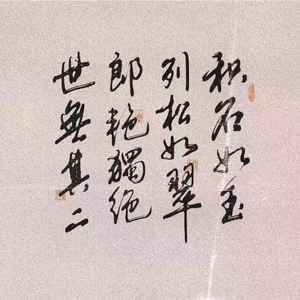 积石如玉
列松如翠
郎艳獨绝
世無其二